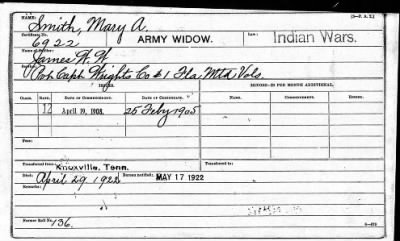 NAME: Smith, Mary A. (3-F. A. I.)
Certificate No. 6922 ARMY WIDOW. Law: Indian Wars.
Name of Soldier: James W. W.
Service: Capt Wrights Co #1 Fla. Mtd Vols.
ISSUES. BEFORE $2 PER MONTH ADDITIONAL.
CLASS. RATE. DATE OF COMMENCEMENT. DATE OF CERTIFICATE. NAMES. COMMENCEMENT. ENDING.
12 April 19, 1908. 25 Feby 1905
Fees:
Transferred from: Knoxville, Tenn. Transferred to:
Died: April 29, 1922 Bureau notified: MAY 17 1922
Remarks:
Former Roll No. 136.